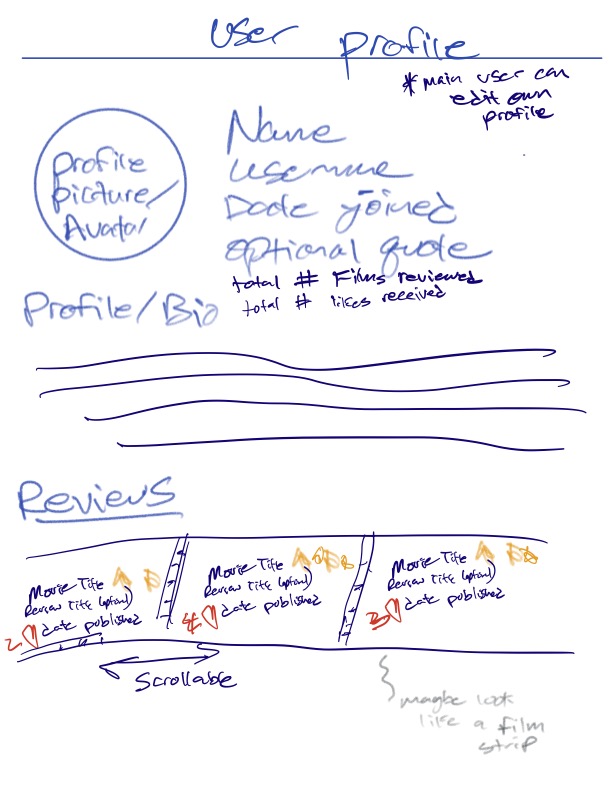 user profile
* main user can
edit own
profile
Profile
picture/
Avatar
Name
username
Date joined
optional quote
total # Films reviewed
total # likes received
Profile/Bio
Reviews
Movie Title
Review Title (optional)
2 date published
Movie Title
Review Title (optional)
4 date published
Movie Title
Review Title (optional)
3 date published
Scrollable
maybe look
like a film
strip